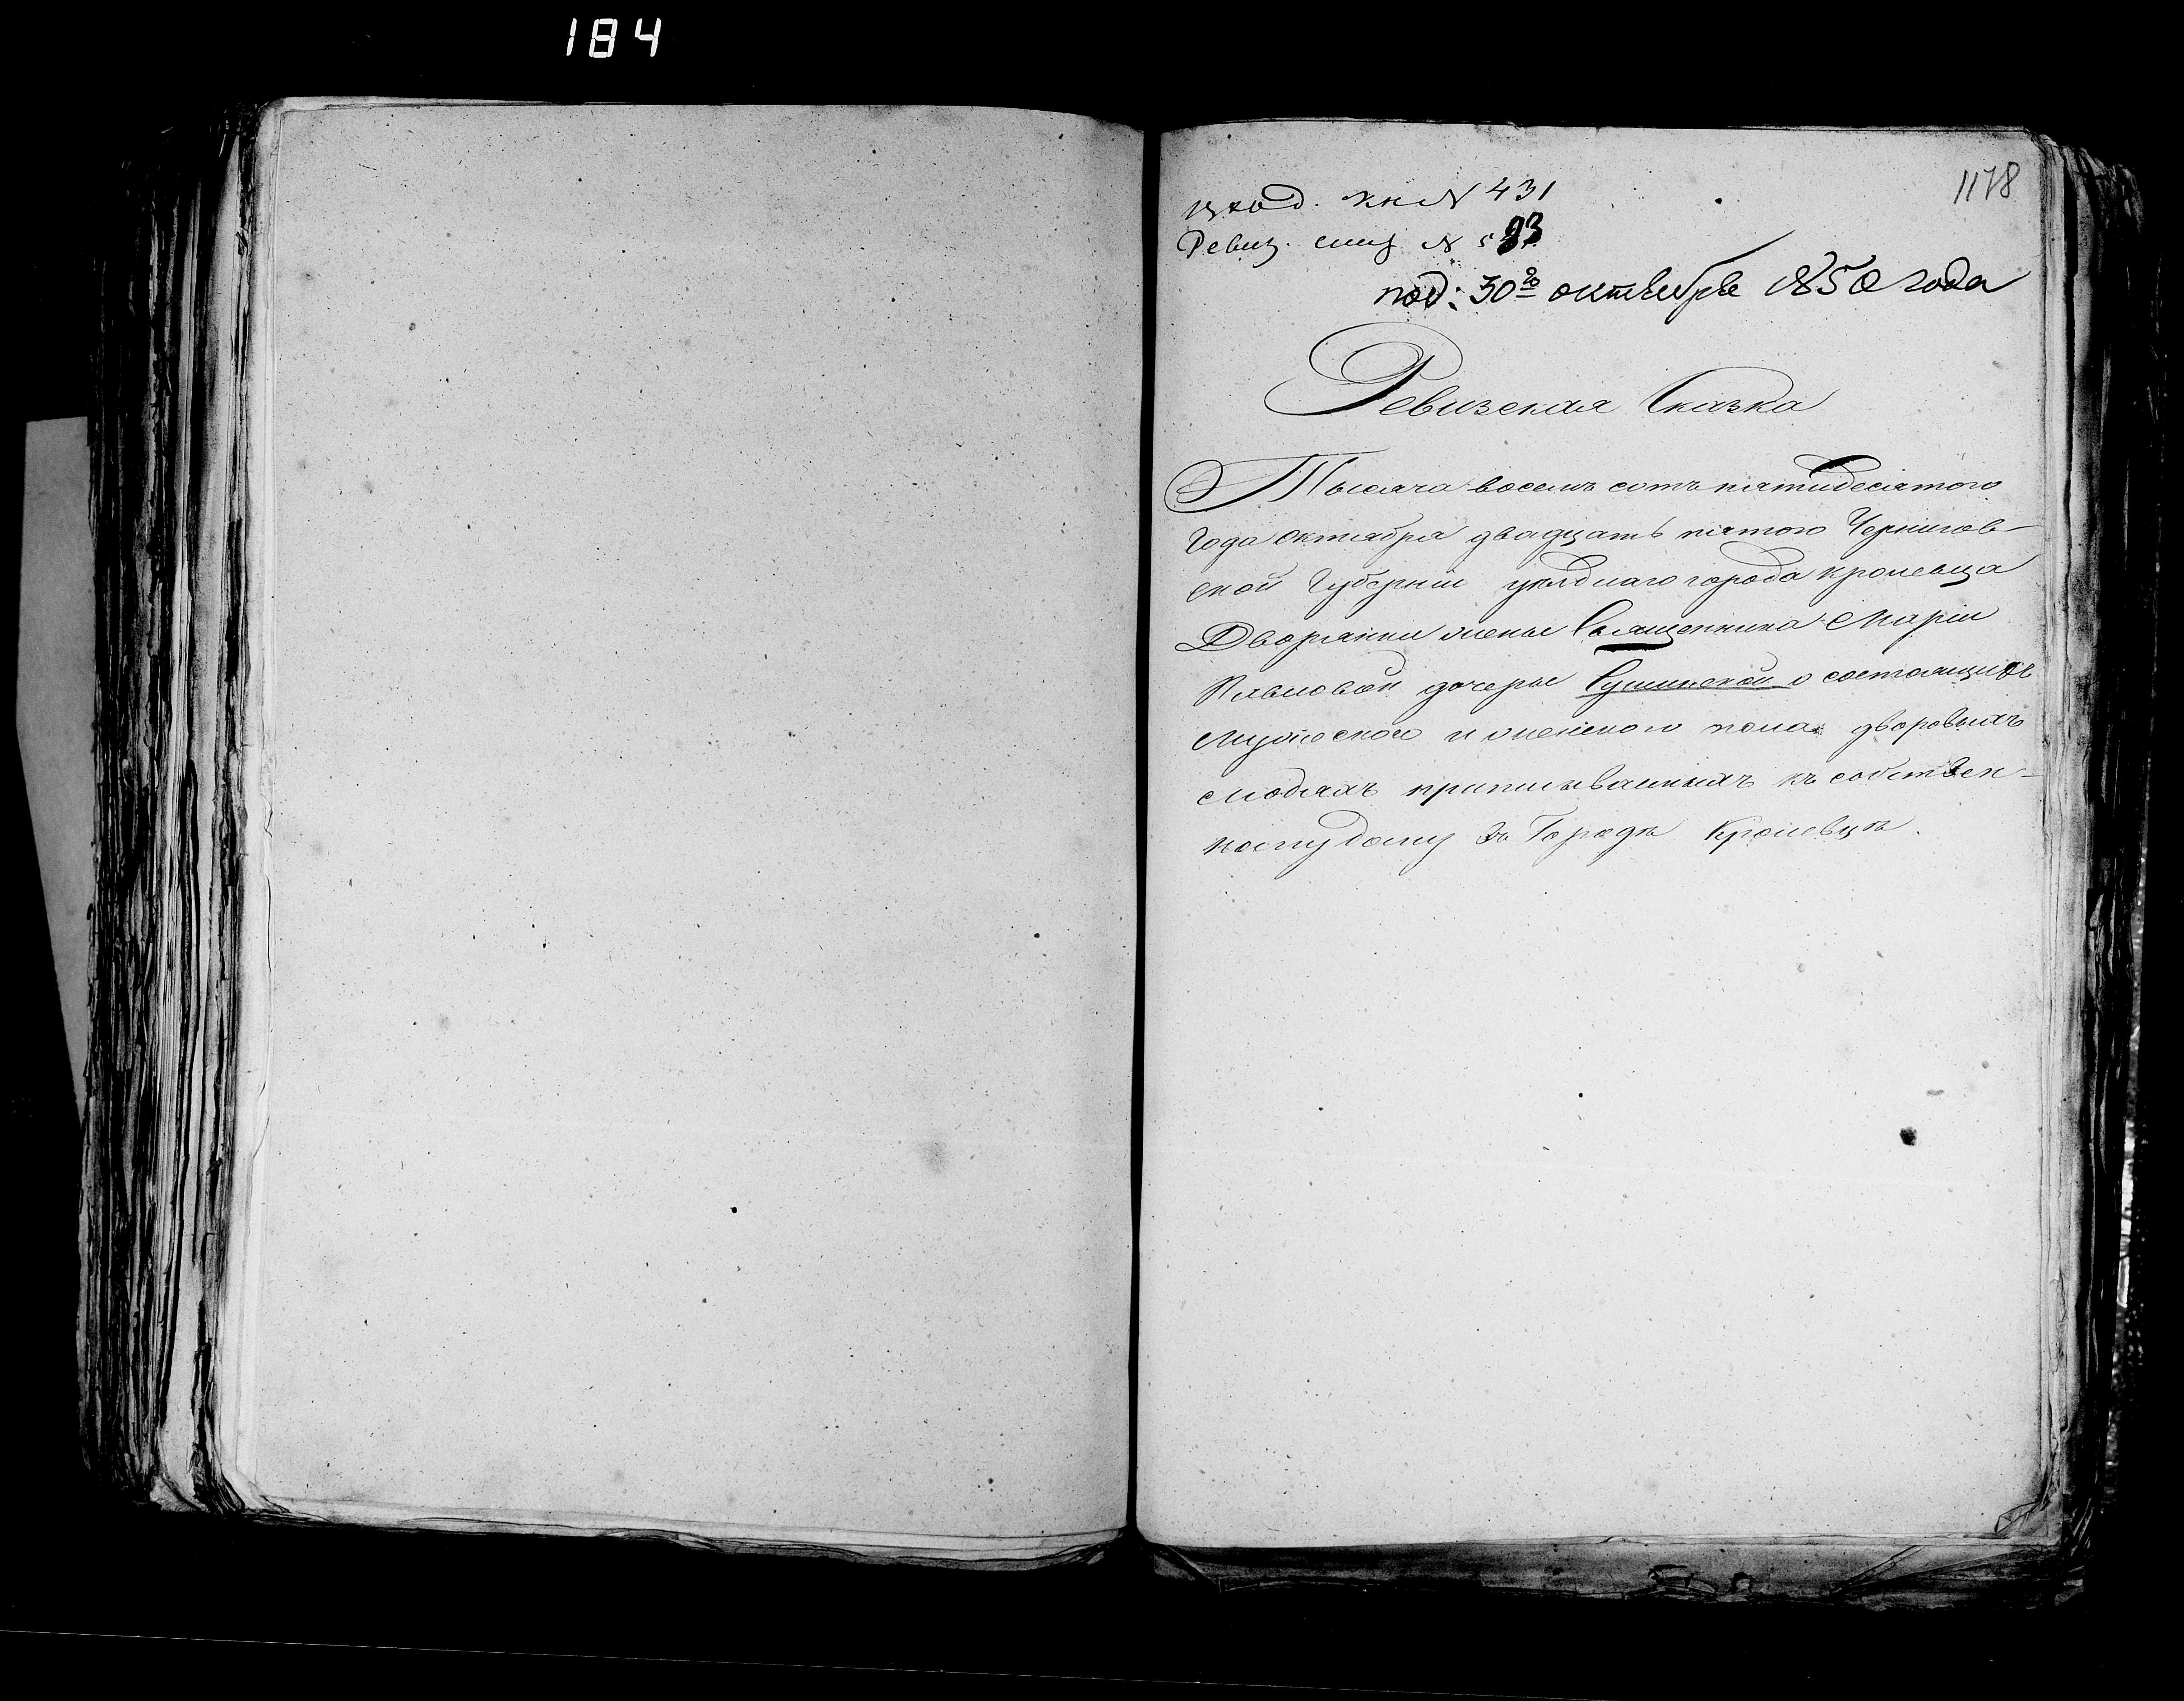 184
1178
вход. кн № 431
Ревиз. спис № 583
под: 30го октября 1850 года
Ревизская Сказка
Тысяча восемъ сотъ пятидесятого
года октября двадцать пятого Чернигов-
ской Губерніи уѣзднаго города Кролевца
Дворянки жены Священника Маріи
Павловой дочери о состоящихъ
мужеска и женскаго пола дворовыхъ
людяхъ приписыванныхъ къ собствен-
ному дому въ Городѣ Кролевцѣ.